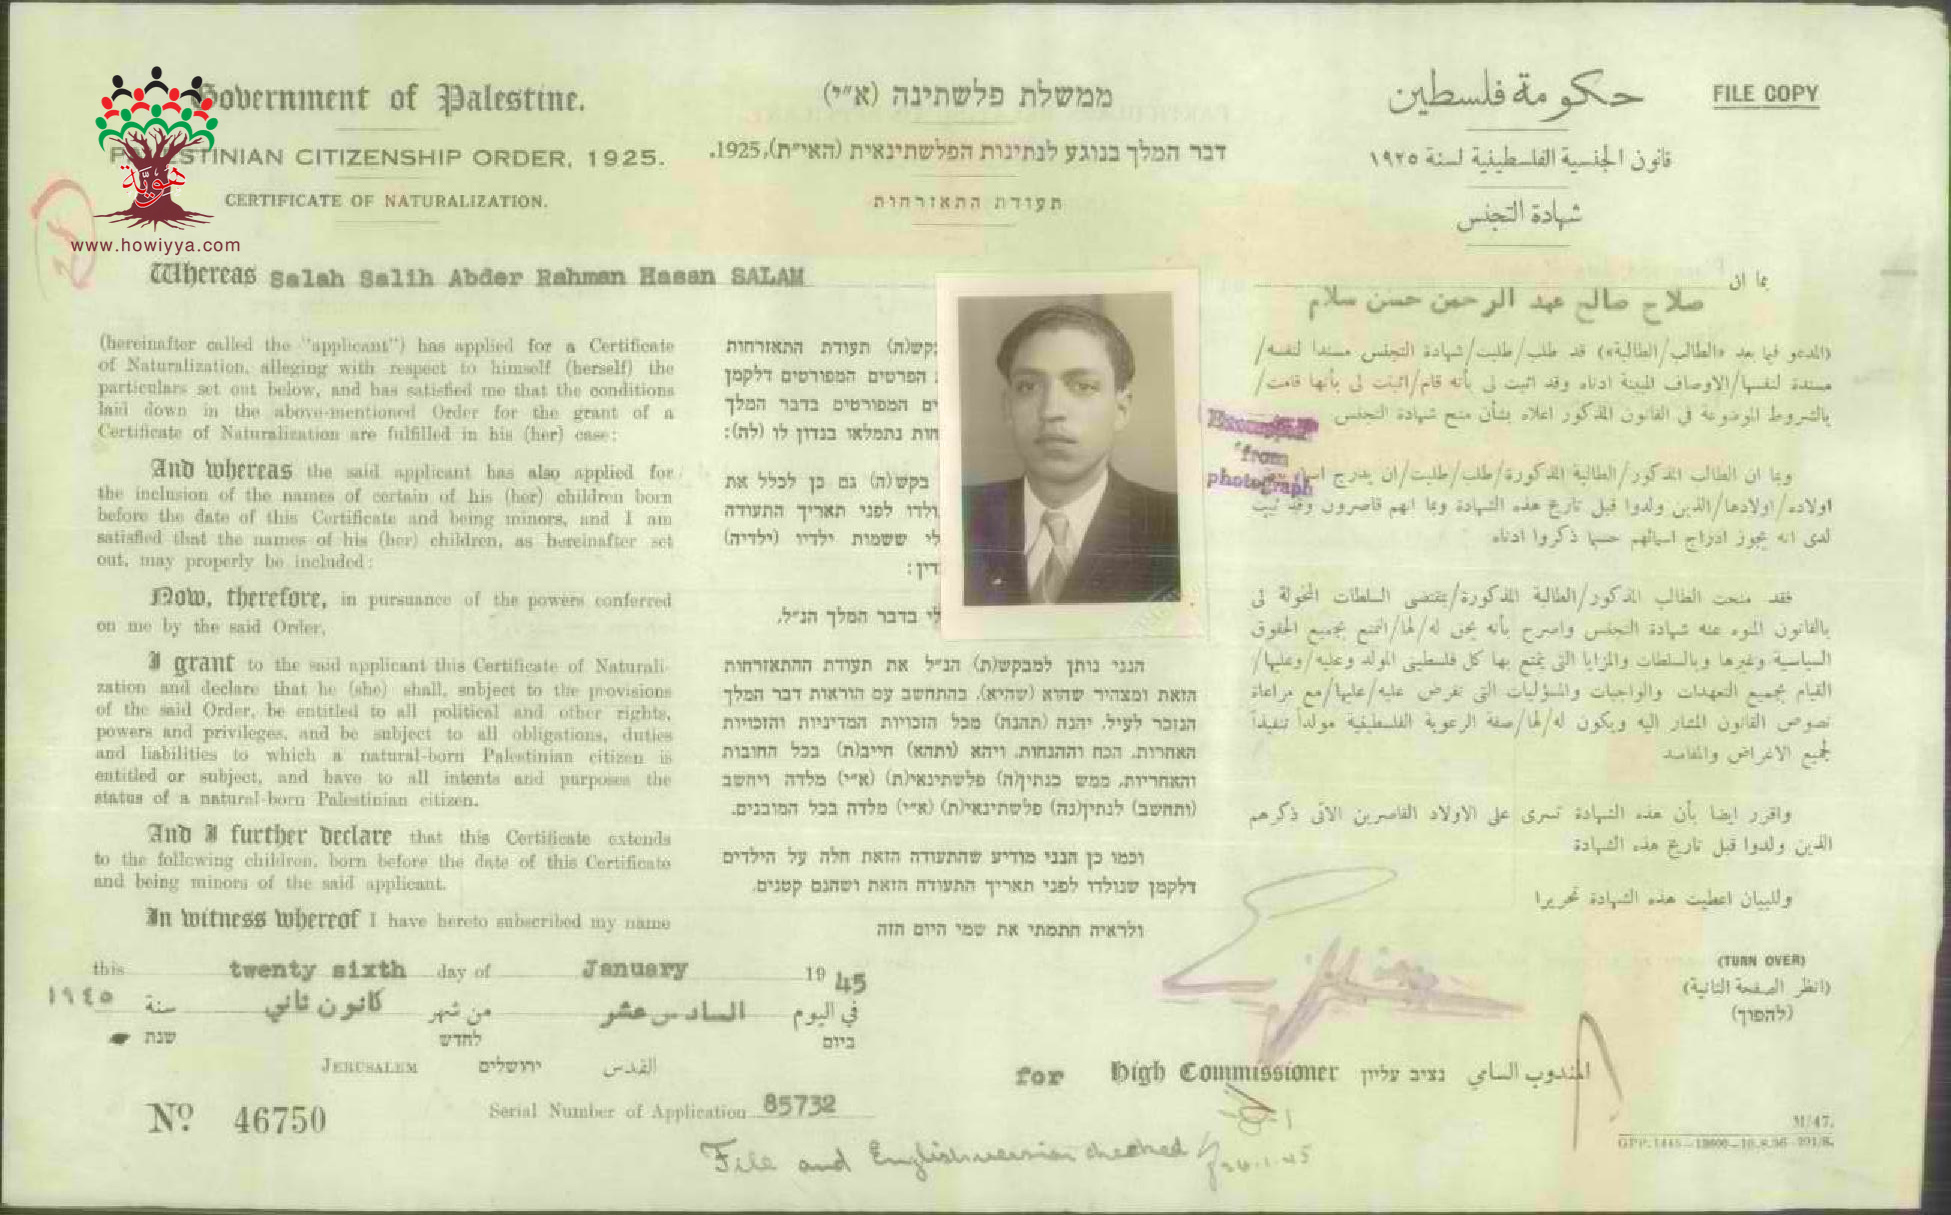 Government of Palestine.
PALESTINIAN CITIZENSHIP ORDER, 1925.
CERTIFICATE OF NATURALIZATION.
هوية
www.howiyya.com
ממשלת פלשתינה (א״י)
דבר המלך בנוגע לנתינות הפלשתינאית (הא״ית), 1925.
תעודת התאזרחות
حكومة فلسطين
قانون الجنسية الفلسطينية لسنة ١٩٢٥
شهادة التجنس
FILE COPY
Whereas Salah Salih Abder Rahman Hasan SALAM
(hereinafter called the "applicant") has applied for a Certificate
of Naturalization, alleging with respect to himself (herself) the
particulars set out below, and has satisfied me that the conditions
laid down in the above-mentioned Order for the grant of a
Certificate of Naturalization are fulfilled in his (her) case:
And whereas the said applicant has also applied for
the inclusion of the names of certain of his (her) children born
before the date of this Certificate and being minors, and I am
satisfied that the names of his (her) children, as hereinafter set
out, may properly be included:
Now, therefore, in pursuance of the powers conferred
on me by the said Order,
I grant to the said applicant this Certificate of Naturali-
zation and declare that he (she) shall, subject to the provisions
of the said Order, be entitled to all political and other rights,
powers and privileges, and be subject to all obligations, duties
and liabilities to which a natural-born Palestinian citizen is
entitled or subject, and have to all intents and purposes the
status of a natural-born Palestinian citizen.
And I further declare that this Certificate extends
to the following children, born before the date of this Certificate
and being minors of the said applicant.
In witness whereof I have hereto subscribed my name
תעודת התאזרחות
הפרטים המפורטים דלקמן
המפורטים בדבר המלך
נתמלאו בנדון לו (לה):
בקש(ה) גם כן לכלל את
לפני תאריך התעודה
ששמות ילדיו (ילדיה)
בדבר המלך הנ״ל.
הנני נותן למבקש(ת) הנ״ל את תעודת ההתאזרחות
הזאת ומצהיר שהוא (שהיא), בהתחשב עם הוראות דבר המלך
הנזכר לעיל, יהנה (תהנה) מכל הזכויות המדיניות והזכויות
האחרות, הכח וההנחות, ויהא (ותהא) חייב(ת) בכל החובות
והאחריות, ממש כנתין(ה) פלשתינאי(ת) (א״י) מלדה ויחשב
(ותחשב) לנתין(נה) פלשתינאי(ת) (א״י) מלדה בכל המובנים.
וכמו כן הנני מודיע שהתעודה הזאת חלה על הילדים
דלקמן שנולדו לפני תאריך התעודה הזאת ושהנם קטנים.
ולראיה חתמתי את שמי היום הזה
بما ان
صلاح صالح عبد الرحمن حسن سلام
(المدعو فيما بعد «الطالب/الطالبة») قد طلب/طلبت/شهادة التجنس مسندا لنفسه/
مسندة لنفسها/الاوصاف المبينة ادناه وقد اثبت لي بأنه قام/اثبتت لي بأنها قامت/
بالشروط الموضوعة في القانون المذكور اعلاه بشأن منح شهادة التجنس.
وبما ان الطالب المذكور/الطالبة المذكورة/طلب/طلبت/ان يدرج
اولاده/اولادها/الذين ولدوا قبل تاريخ هذه الشهادة وبما انهم قاصرون وقد ثبت
لدى انه يجوز ادراج اسمائهم حسبما ذكروا ادناه.
فقد منحت الطالب المذكور/الطالبة المذكورة/بمقتضى السلطات المخولة لي
بالقانون المنوه عنه شهادة التجنس واصرح بأنه يحق له/لها/التمتع بجميع الحقوق
السياسية وغيرها وبالسلطات والمزايا التي يتمتع بها كل فلسطيني المولد وعليه/وعليها/
القيام بجميع التعهدات والواجبات والمسؤليات التي تفرض عليه/عليها/مع مراعاة
نصوص القانون المشار اليه ويكون له/لها/صفة الرعوية الفلسطينية مولداً تنفيذاً
لجميع الاغراض والمقاصد
واقرر ايضا بأن هذه الشهادة تسرى على الاولاد القاصرين الاتى ذكرهم
الذين ولدوا قبل تاريخ هذه الشهادة
وللبيان اعطيت هذه الشهادة تحريرا
"from
photograph
this twenty sixth day of January 1945
في اليوم السادس عشر من شهر كانون ثاني سنة ١٩٤٥
ביום לחדש שנת
JERUSALEM ירושלים القدس
(TURN OVER)
(انظر الصفحة الثانية)
(להפוך)
for High Commissioner נציב עליון المندوب السامي
No. 46750
Serial Number of Application 85732
File and English version checked
26.1.45
M/47.